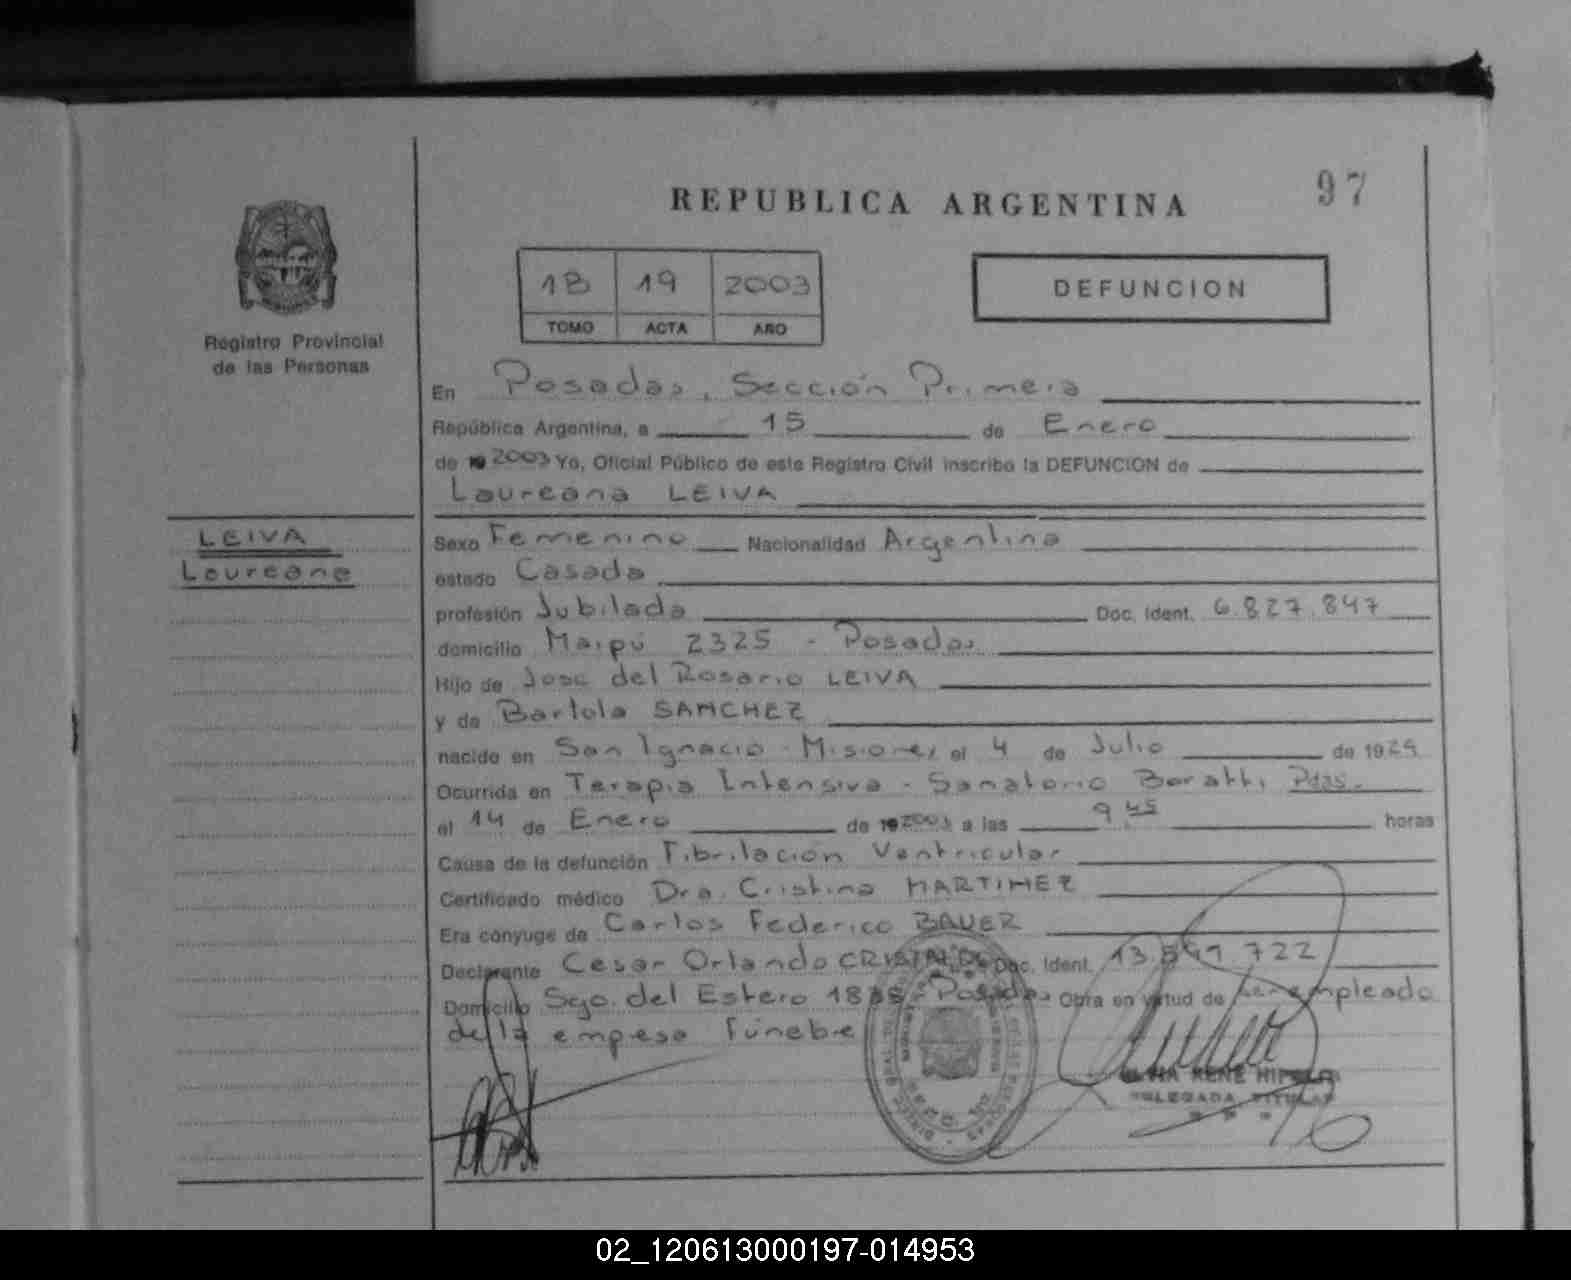 97
REPUBLICA ARGENTINA
18 19 2003
TOMO ACTA AÑO
DEFUNCION
Registro Provincial
de las Personas
En Posadas, Sección Primera
República Argentina, a 15 de Enero
de 19 2003 Yo, Oficial Público de este Registro Civil inscribo la DEFUNCION de
Laureana LEIVA
LEIVA
Laureana
Sexo Femenino Nacionalidad Argentina
estado Casada
profesión Jubilada Doc. Ident. 6.827.847
domicilio Maipú 2325 - Posadas
Hijo de José del Rosario LEIVA
y de Bartola SANCHEZ
nacido en San Ignacio - Misiones el 4 de Julio de 1929
Ocurrida en Terapia Intensiva - Sanatorio Boratti, Pdas.
el 14 de Enero de 19 2003 a las 9,45 horas
Causa de la defunción Fibrilación Ventricular
Certificado médico Dra. Cristina MARTINEZ
Era cónyuge de Carlos Federico BAUER
Declarante Cesar Orlando CRISTALDO Doc. Ident. 13.897.722
Domicilio Sgo. del Estero Posadas Obra en virtud de ser empleado
de la empesa Fúnebre
RENE
DELEGADA TITULAR
02_120613000197-014953